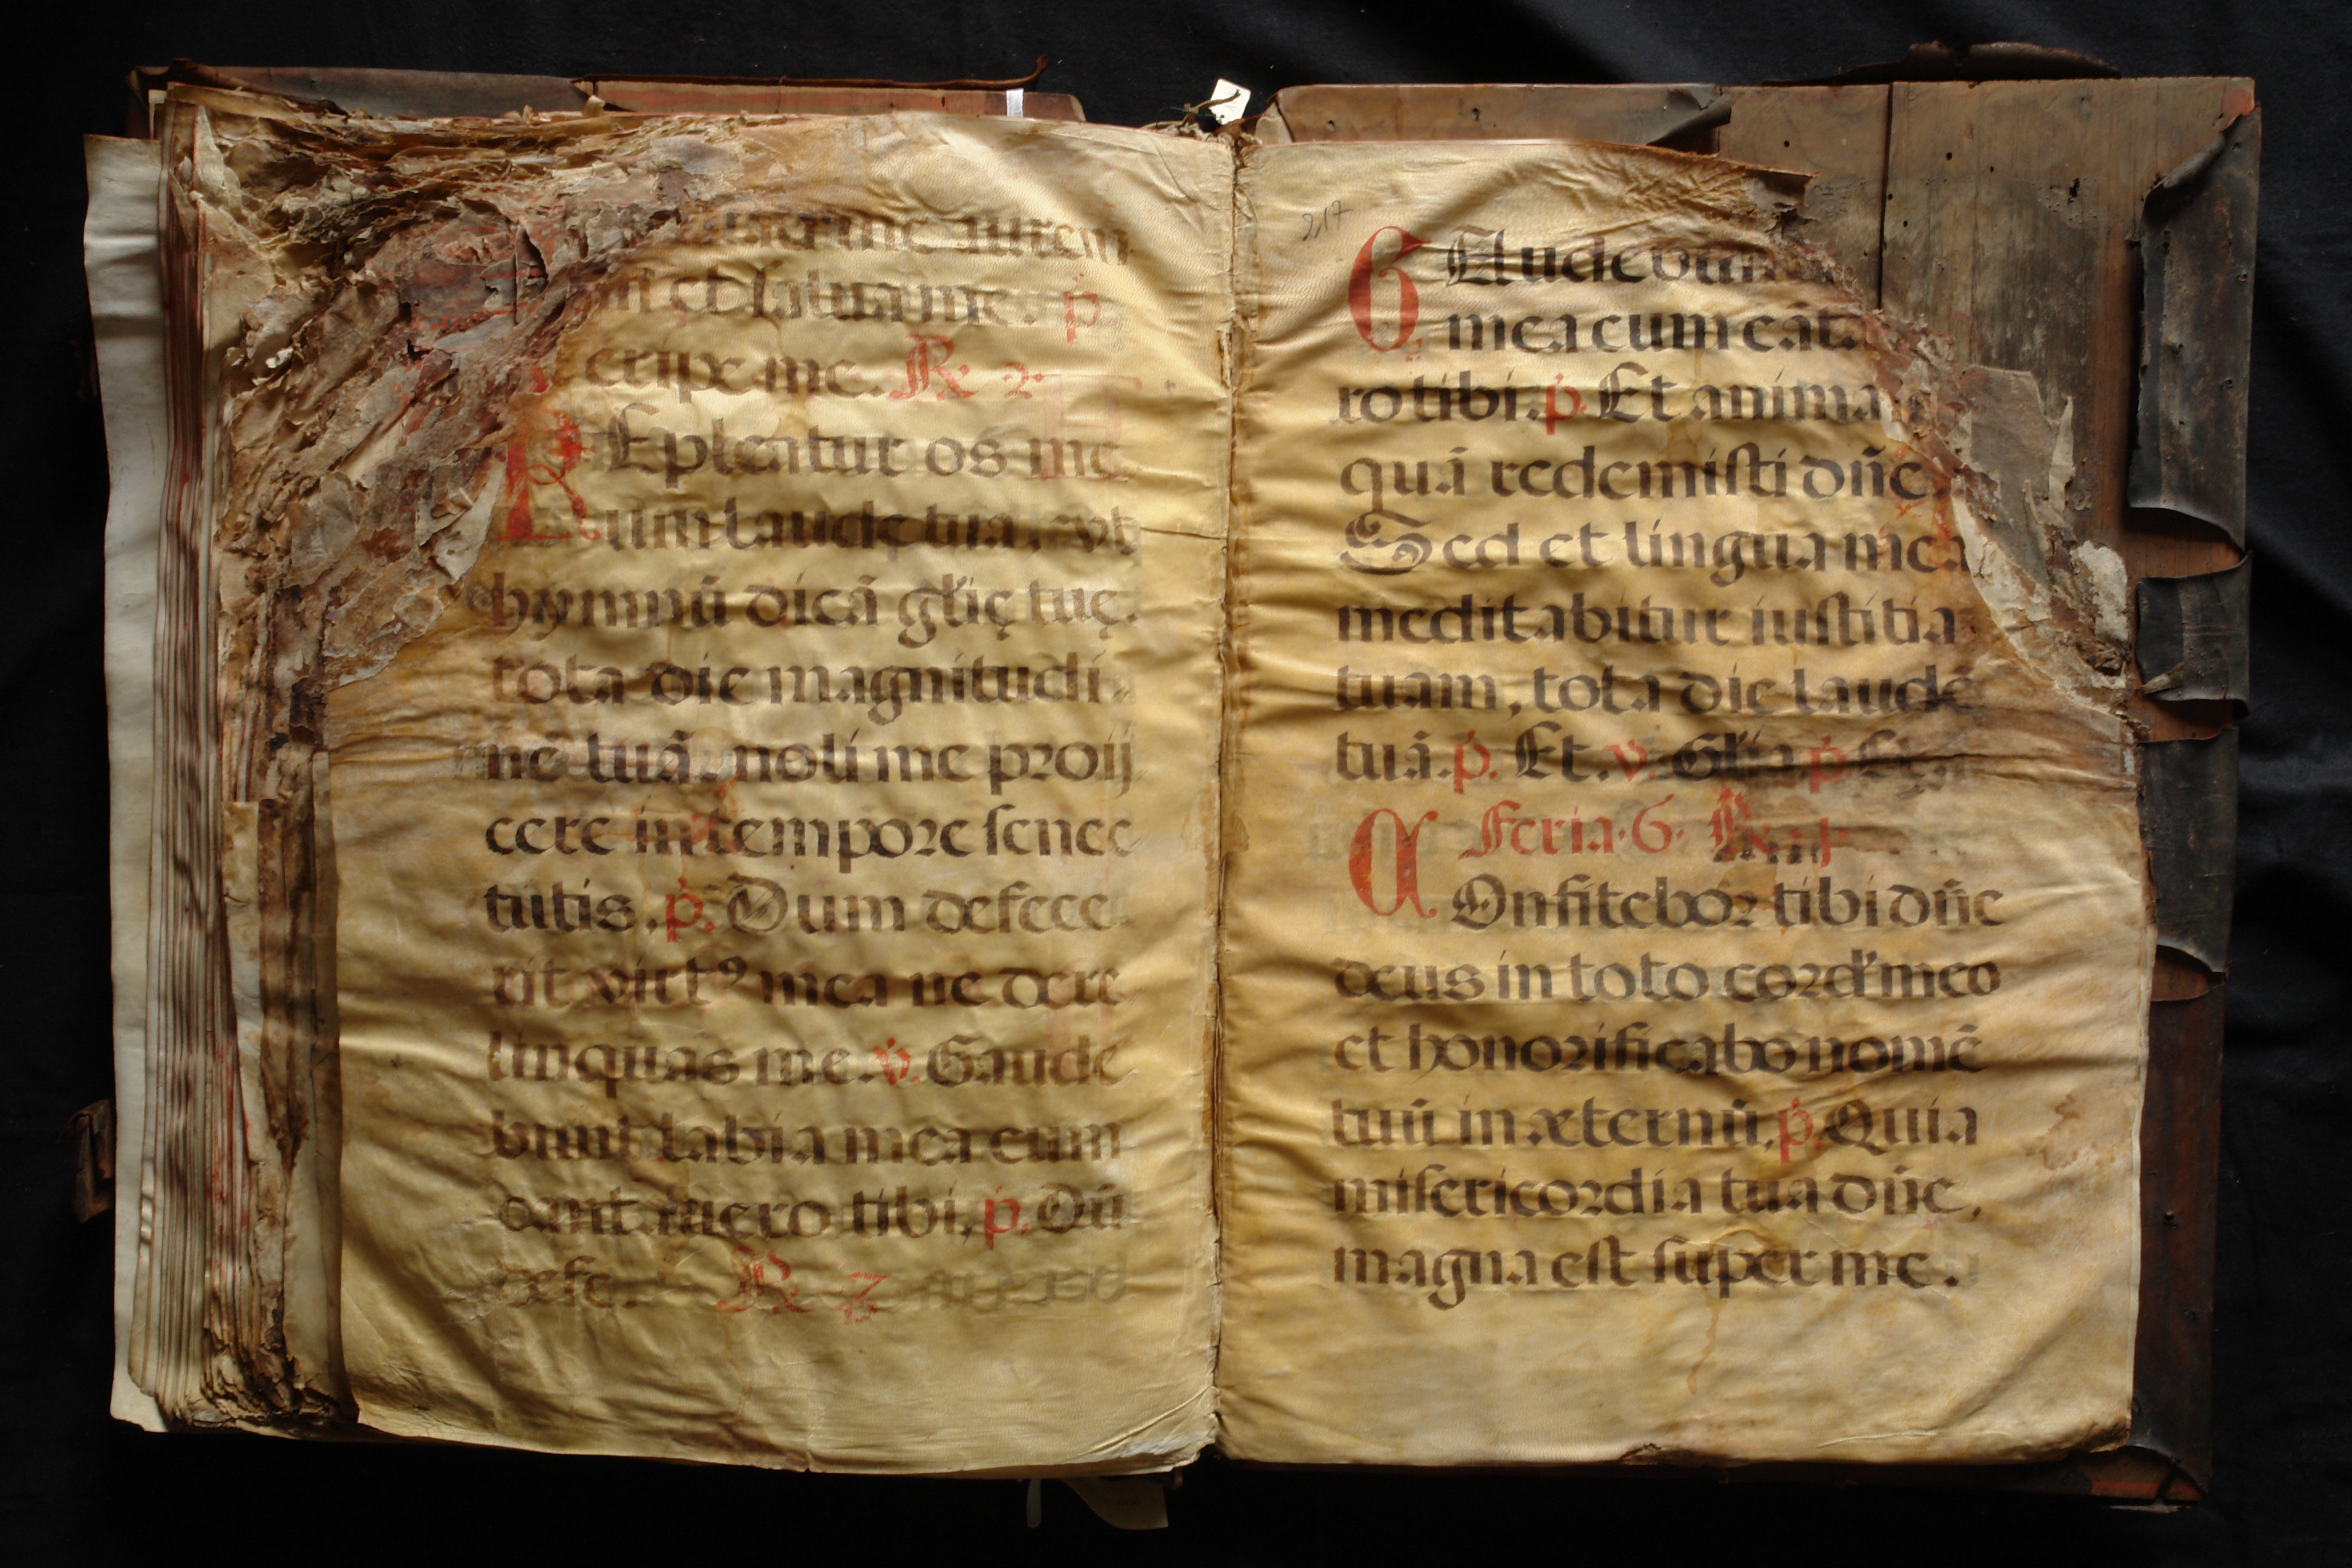 me autem
et salva me. p.
eripe me. R. 2.
REpleatur os me
um laude tua, vt
hymnū dicā gl̄ię tuę.
tota die magnitudi
nē tuā. noli me proij
cere in tempore senec
tutis. p. Dum defece
rit virtꝰ mea ne dere
linquas me. v. Gaude
bunt labia mea cum
cantavero tibi, p. Dū
defe. R. 3
217
GAudebunt
mea cum cāta
ro tibi. p. Et anima
quā redemisti dn̄e.
Sed et lingua mea
meditabitur iustitia
tuam, tota die laudē
tuā. p. Et. v. Gl̄ia. p. Et
Feria. 6. R.
COnfitebor tibi dn̄e
deus in toto cord' meo
et honorificabo nomē
tuū in æternū, p. Quia
misericordia tua dn̄e,
magna est super me.